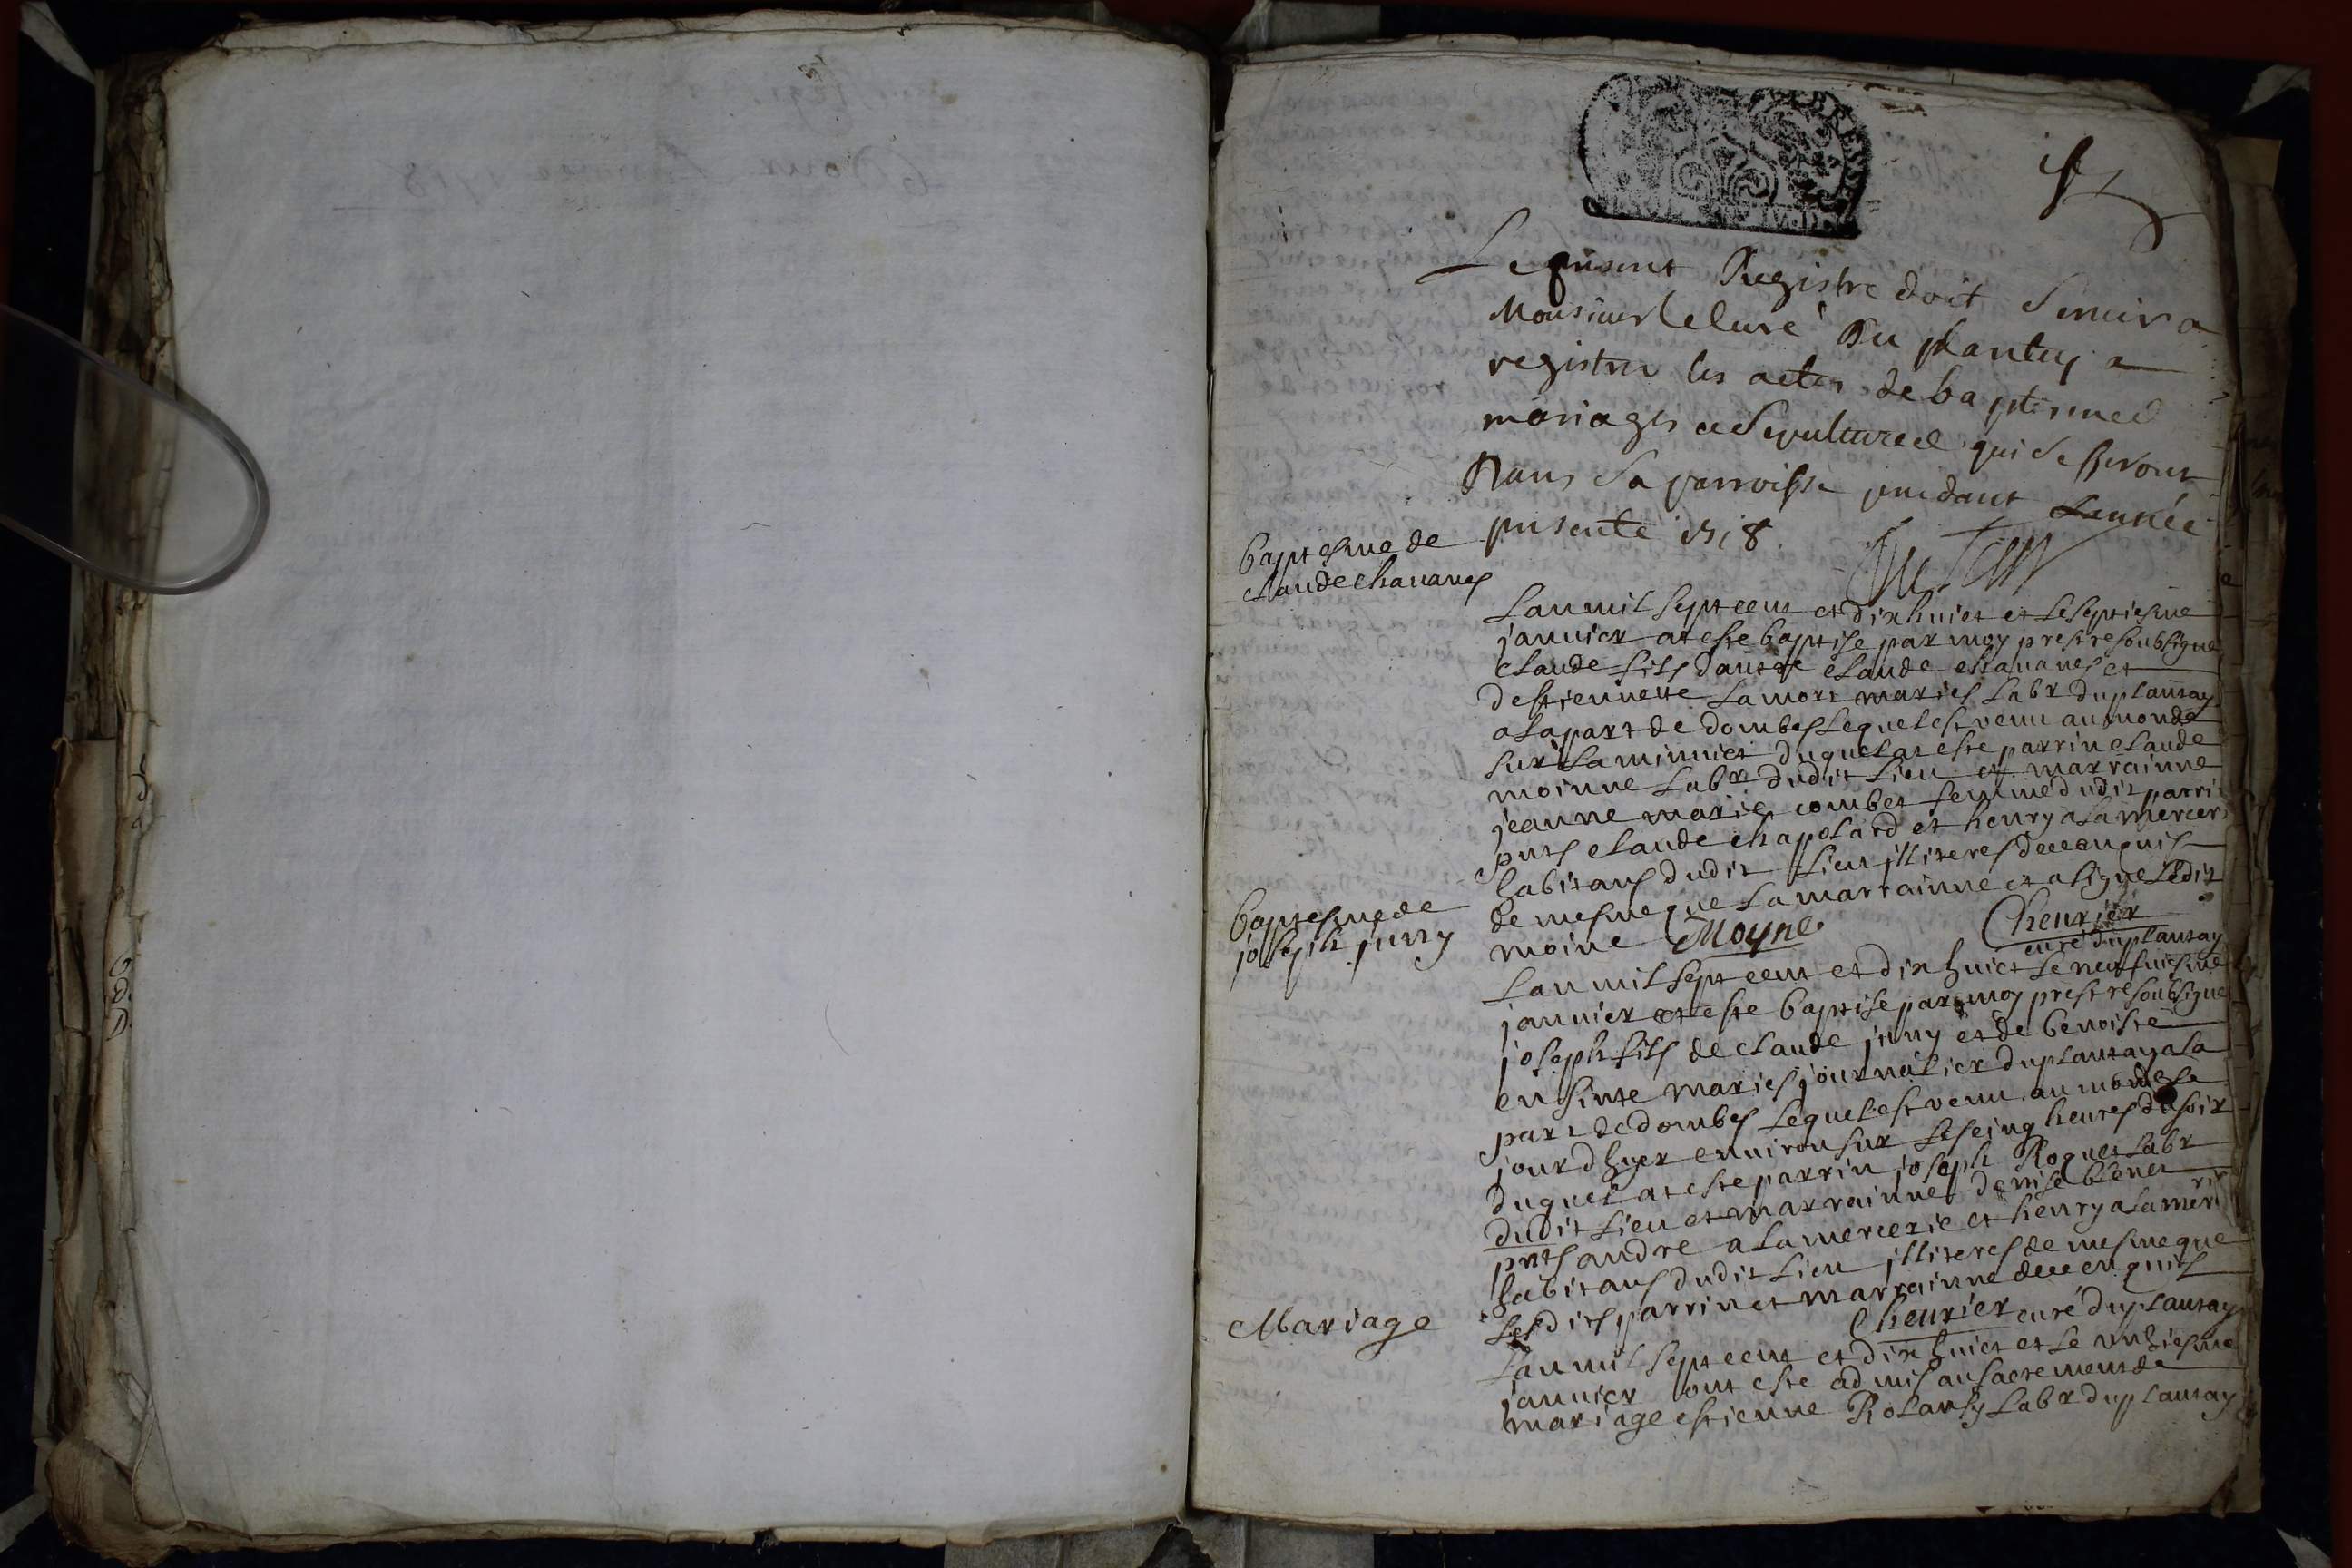 Le present Registre doit servir a
Monsieur le Curé Du plantay a
registrer les actes de baptesmes
mariages et sepultures qui se feront
Dans sa parroisse pendant Lannée
presente 1718.
baptesme de
claude chavanes
Lan mil sept cent et dix huict et le septiesme
janvier at este baptise par moy prestre soubsigne
claude fils dautre claude chavanes et
destiennette Lamort maries Labr du plantay
a la part de dombes lequel est venu au monde
sur la minuict duquel at este parrin claude
moinne Labr dudit Lieu et marrainne
jeanne marie combet femme dudit parri
pnts claude chapolard et henry alamercer
habitans dudit Lieu illiteres de ce enquis
de mesme que La marrainne et a signe ledit
moine Moyne Cheurier
curé du plantay
baptesme de
joseph juny
Lan mil sept cent et dix huict le neufuiesme
janvier at este baptise par moy prestre soubsigne
joseph fils de claude juny et de benoiste
maries journalier du plantay a la
part de dombes lequel est venu au monde le
jour dhyer environ sur les cinq heures du soir
duquel at este parrin joseph Roguet Labr
dudit Lieu et marrainne denise blenet
pnts andre alamercerie et henry alamer
habitans dudit Lieu illiteres de mesme que
lesdits parrin et marrainne de ce enquis
Cheurier curé du plantay
Mariage
Lan mil sept cent et dix huict et le unziesme
janvier ont este admis au sacrement de
mariage estienne Labr du plantay